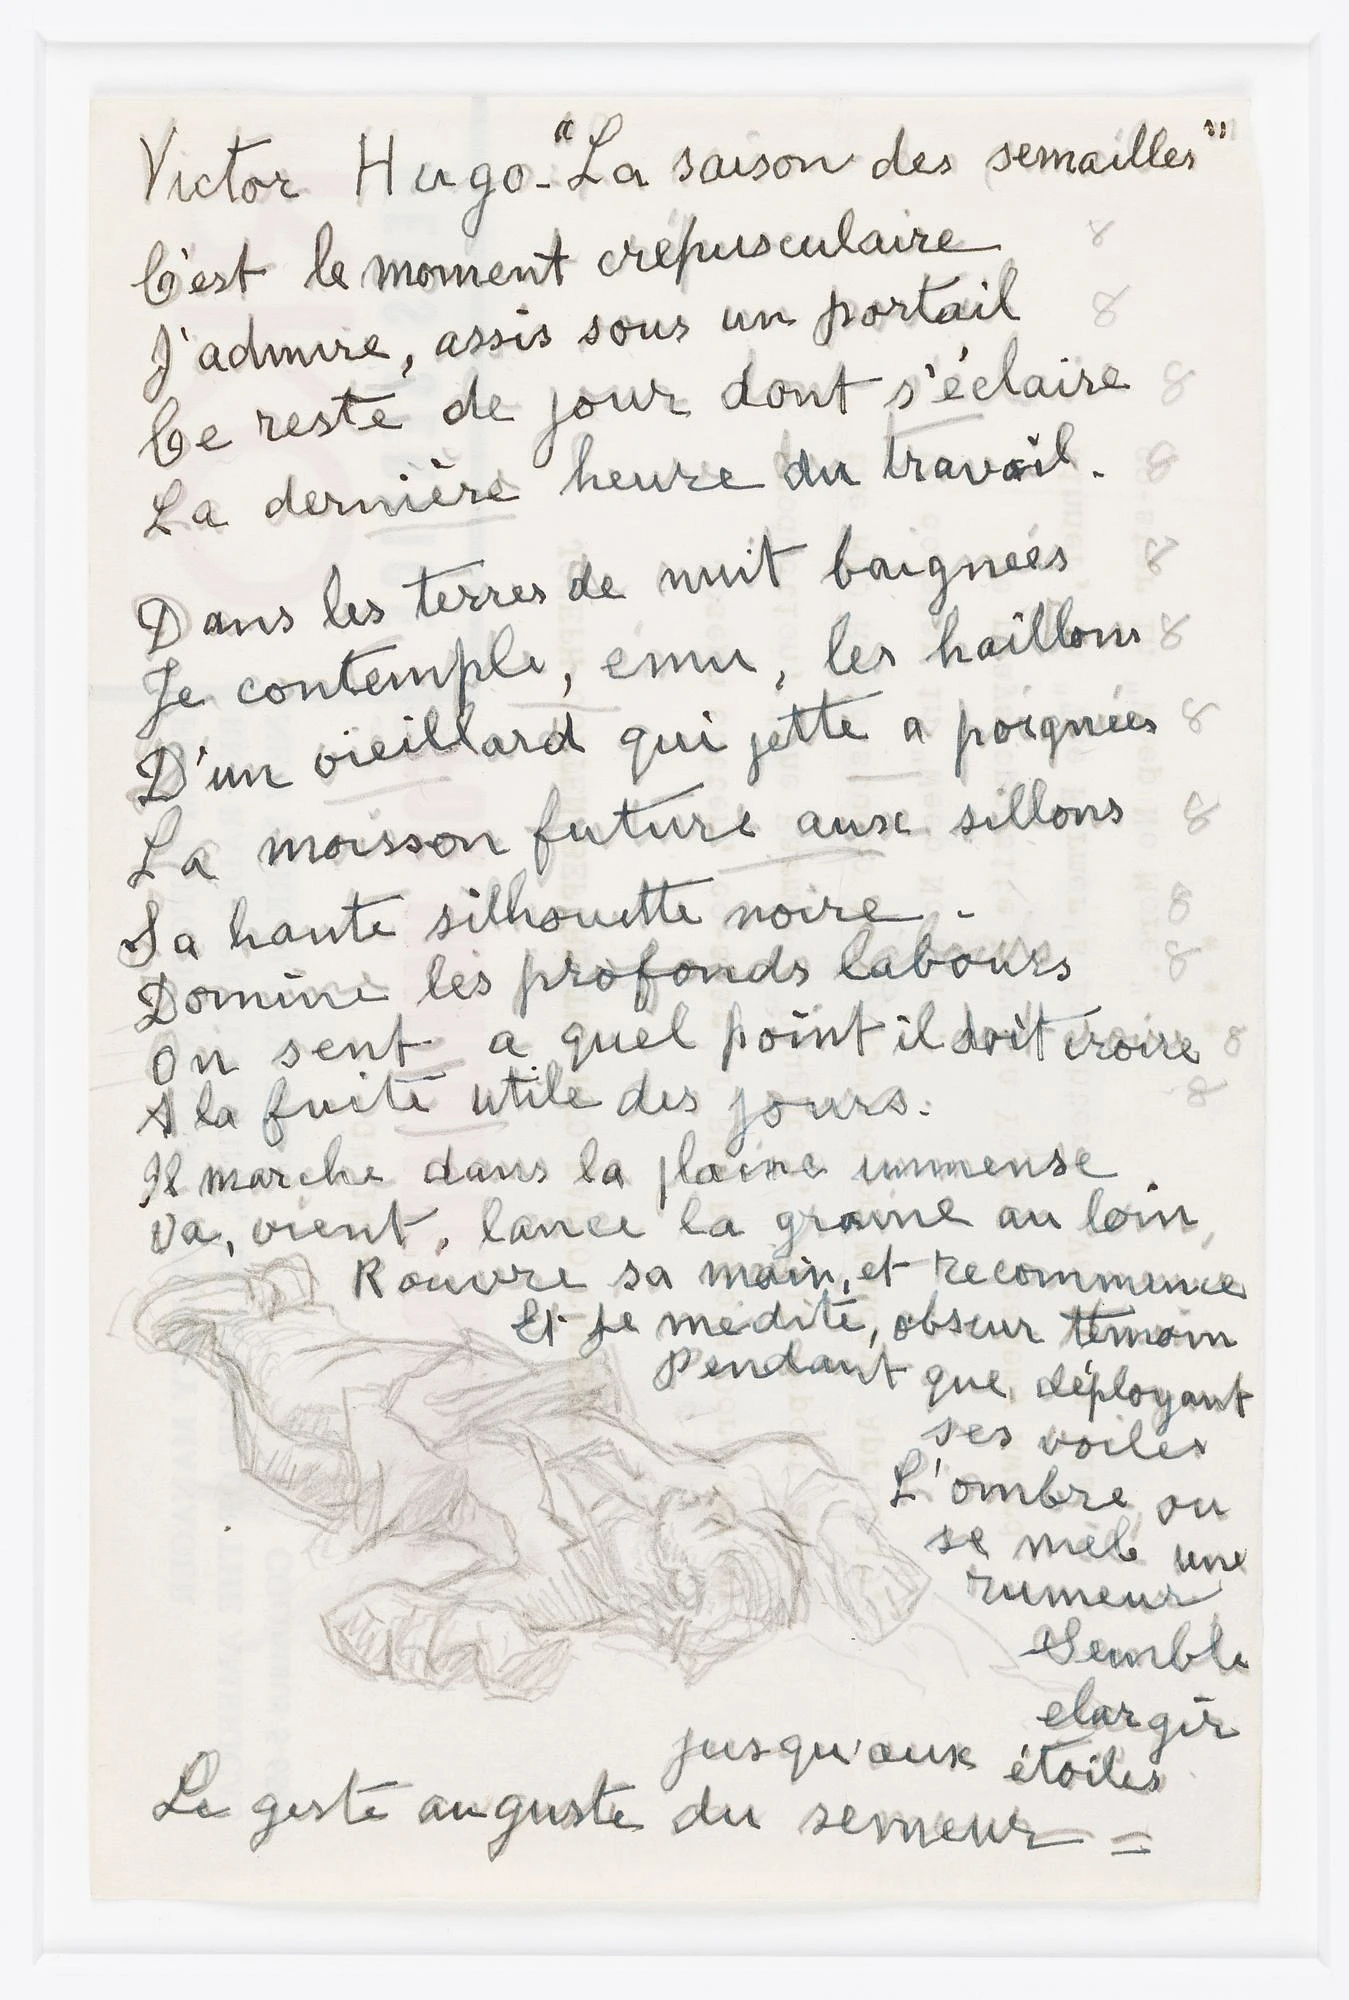 Victor Hugo - "La saison des semailles"
C'est le moment crepusculaire 8
J'admire, assis sous un portail 8
Ce reste de jour dont s'éclaire 8
La dernière heure du travail. 8
Dans les terres de nuit baignées 8
Je contemple, emu, les haillons 8
D'un vieillard qui jette a poignées 8
La moisson future aux sillons 8
Sa haute silhouette noire - 8
Domine les profonds labours 8
On sent a quel point il doit croire 8
A la fuite utile des jours. 8
Il marche dans la plaine immense
Va, vient, lance la graine au loin,
Rouvre sa main, et recommence
Et je medite, obscur témoin
Pendant que, déployant
ses voiles
L'ombre ou
se mele une
rumeur
Semble
elargir
jusqu'aux étoiles
Le geste auguste du semeur =